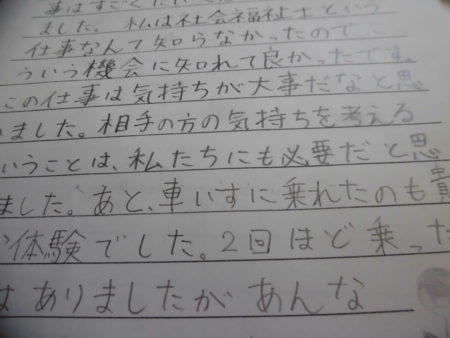 事はすごくたい
ました。私は社会福祉士という
仕事なんて知らなかったのでこ
ういう機会に知れて良かったです。
この仕事は気持ちが大事だなと思
いました。相手の方の気持ちを考える
いうことは、私たちにも必要だと思
ました。あと、車いすに乗れたのも貴
体験でした。2回ほど乗った
はありましたがあんな